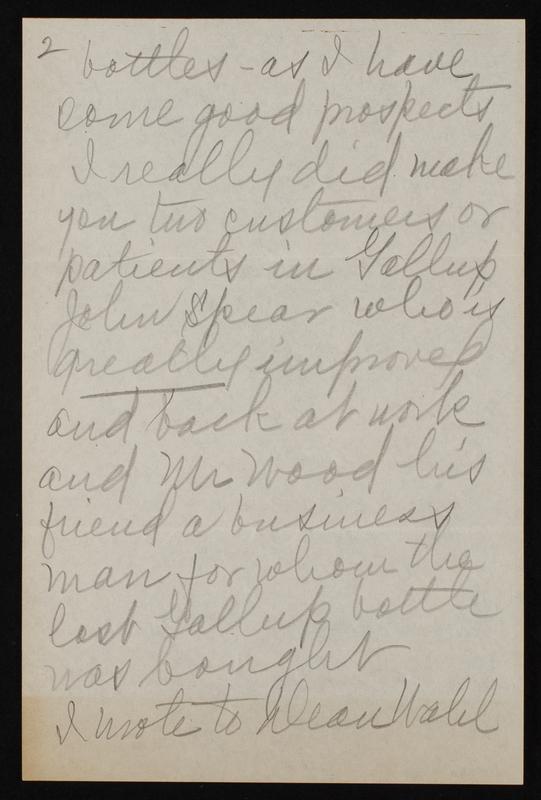 2 bottles - as I have
some good prospects
I really did make
you two customers or
patients in Gallup
John Spear who is
greatly improved
and back at work
and Mr Wood his
friend a business
man for whom the
last Gallup bottle
was bought
I wrote to Dean Wahl